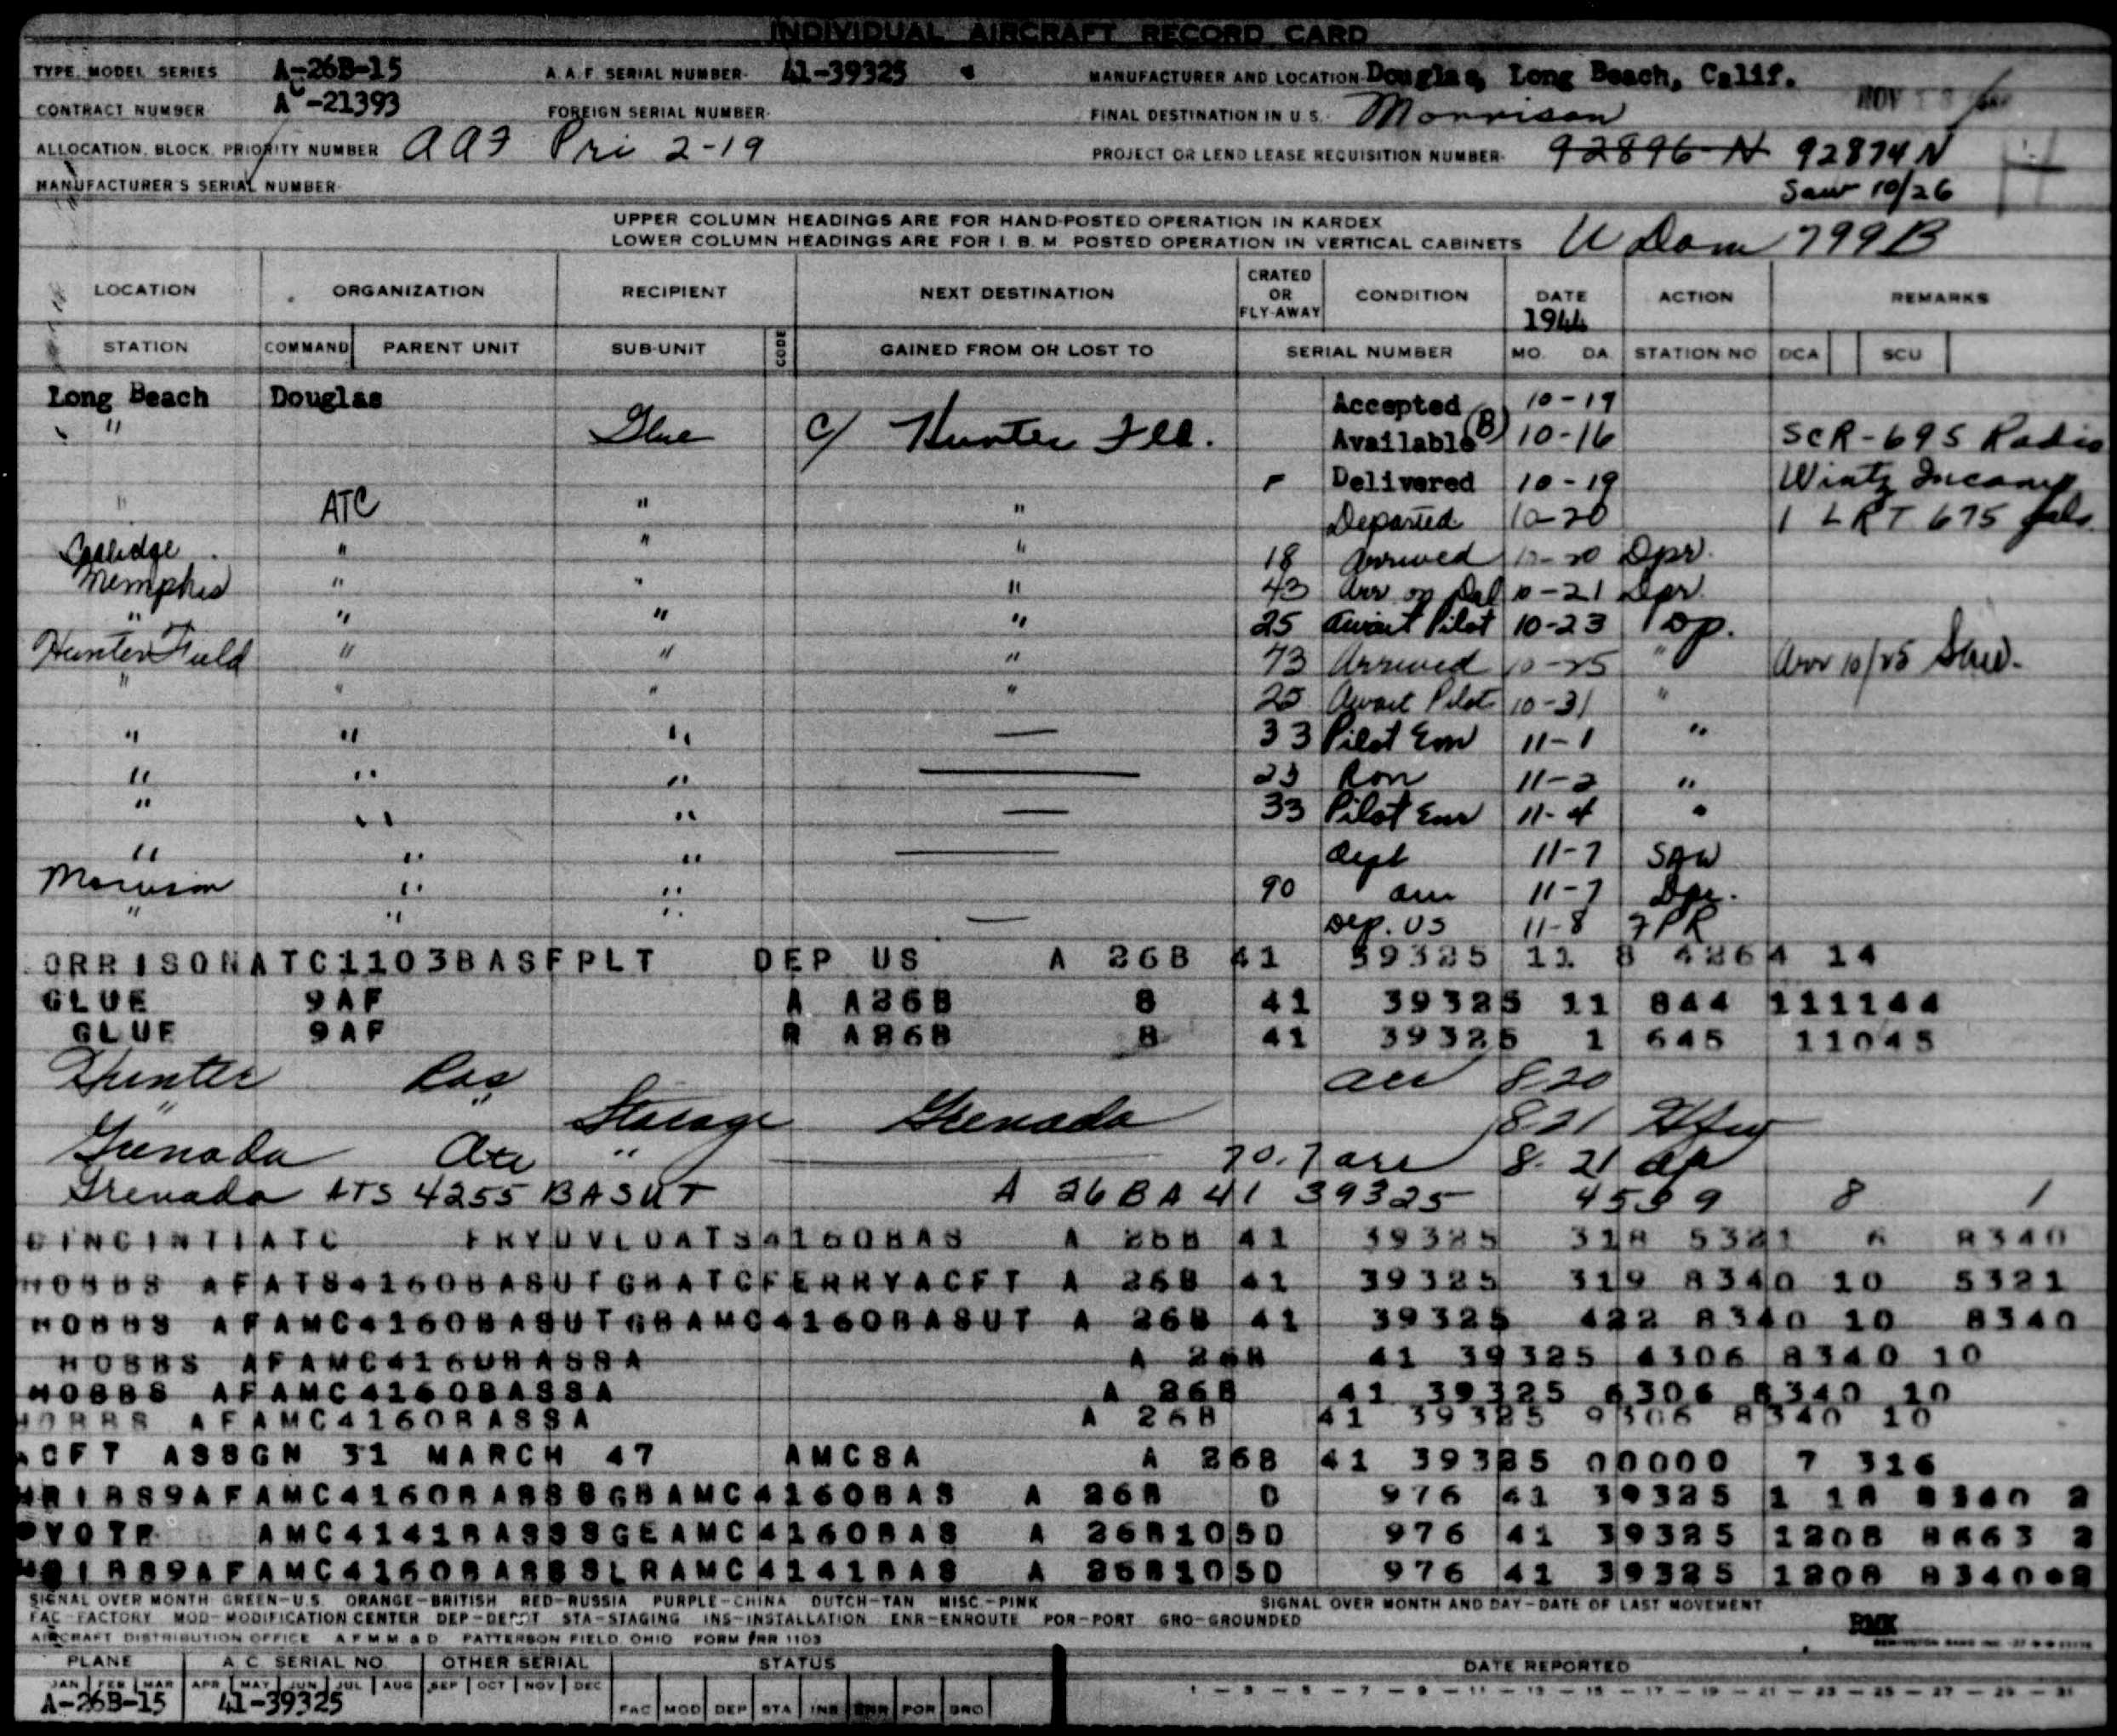 INDIVIDUAL AIRCRAFT RECORD CARD
TYPE, MODEL, SERIES A-26B-15 A.A.F. SERIAL NUMBER 41-39325 MANUFACTURER AND LOCATION Douglas, Long Beach, Calif.
CONTRACT NUMBER AC-21393 FOREIGN SERIAL NUMBER FINAL DESTINATION IN U.S. Morrison NOV
ALLOCATION, BLOCK, PRIORITY NUMBER AAF Pri 2-19 PROJECT OR LEND LEASE REQUISITION NUMBER 92896-N 92874N
MANUFACTURER'S SERIAL NUMBER Saw 10/26
UPPER COLUMN HEADINGS ARE FOR HAND-POSTED OPERATION IN KARDEX
LOWER COLUMN HEADINGS ARE FOR I.B.M. POSTED OPERATION IN VERTICAL CABINETS U Dom 799B
LOCATION ORGANIZATION RECIPIENT NEXT DESTINATION CRATED OR FLY-AWAY CONDITION DATE 1944 ACTION REMARKS
STATION COMMAND PARENT UNIT SUB-UNIT CODE GAINED FROM OR LOST TO SERIAL NUMBER MO. DA. STATION NO DCA SCU
Long Beach Douglas Accepted 10-19
" Glue c/ Hunter Fld. Available (B) 10-16 SCR-695 Radio
F Delivered 10-19 Wintz Incomp
" ATC " " Departed 10-20 1 LRT 675 gals
Coolidge " " " 18 Arrived 10-20 Dpr.
Memphis " " " 43 Arr on Del 10-21 Dpr.
" " " " 25 Await Pilot 10-23 Dp.
Hunter Field " " " 73 Arrived 10-25 " Arr 10/25 Saw.
" " " " 25 Await Pilot 10-31 "
" " " — 33 Pilot Enr 11-1 "
" " " — 23 Ron 11-2 "
" " " — 33 Pilot Enr 11-4 "
" " " — dept 11-7 SAW
Morrison " " 90 arr 11-7 Dpr.
" " " — Dep. US 11-8 FPR
ORRISONATC1103BASFPLT DEP US A 26B 41 39325 11 8 4264 14
GLUE 9AF A A26B 8 41 39325 11 844 111144
GLUE 9AF R A26B 8 41 39325 1 645 11045
Hunter arr 8-20
" " Storage Grenada 8-21
Grenada " — 70.7 arr 8-21
Grenada ATS 4255 BASUT A 26BA 41 39325 4539 8 1
CINCINTIATC FRYDVLOATS4160BAS A 26B 41 39325 318 5321 6 8340
HOBBS AFATS4160BASUTGBATCFERRYACFT A 26B 41 39325 319 8340 10 5321
HOBBS AFAMC4160BASUTGBAMC4160BASUT A 26B 41 39325 422 8340 10 8340
HOBBS AFAMC4160BASSA A 26B 41 39325 4306 8340 10
HOBBS AFAMC4160BASSA A 26B 41 39325 6306 8340 10
HOBBS AFAMC4160BASSA A 26B 41 39325 9306 8340 10
ACFT ASSGN 31 MARCH 47 AMCSA A 26B 41 39325 00000 7 316
1889AFAMC4160BASSSGBAMC4160BAS A 26B D 976 41 39325 1 18 8340 2
PYOTE AMC4141BASSSGEAMC4160BAS A 26B105D 976 41 39325 1208 8663 2
1889AFAMC4160BASSSLRAMC4141BAS A 26B105D 976 41 39325 1208 8340 2
SIGNAL OVER MONTH GREEN-U.S. ORANGE-BRITISH RED-RUSSIA PURPLE-CHINA DUTCH-TAN MISC.-PINK SIGNAL OVER MONTH AND DAY-DATE OF LAST MOVEMENT
FAC-FACTORY MOD-MODIFICATION CENTER DEP-DEPOT STA-STAGING INS-INSTALLATION ENR-ENROUTE POR-PORT GRO-GROUNDED
AIRCRAFT DISTRIBUTION OFFICE A.F.M.M.&D. PATTERSON FIELD, OHIO FORM RR 1103
PLANE A C SERIAL NO. OTHER SERIAL STATUS DATE REPORTED
JAN FEB MAR APR MAY JUN JUL AUG SEP OCT NOV DEC 1 - 3 - 5 - 7 - 9 - 11 - 13 - 15 - 17 - 19 - 21 - 23 - 25 - 27 - 29 - 31
A-26B-15 41-39325 FAC MOD DEP STA INS ENR POR GRO